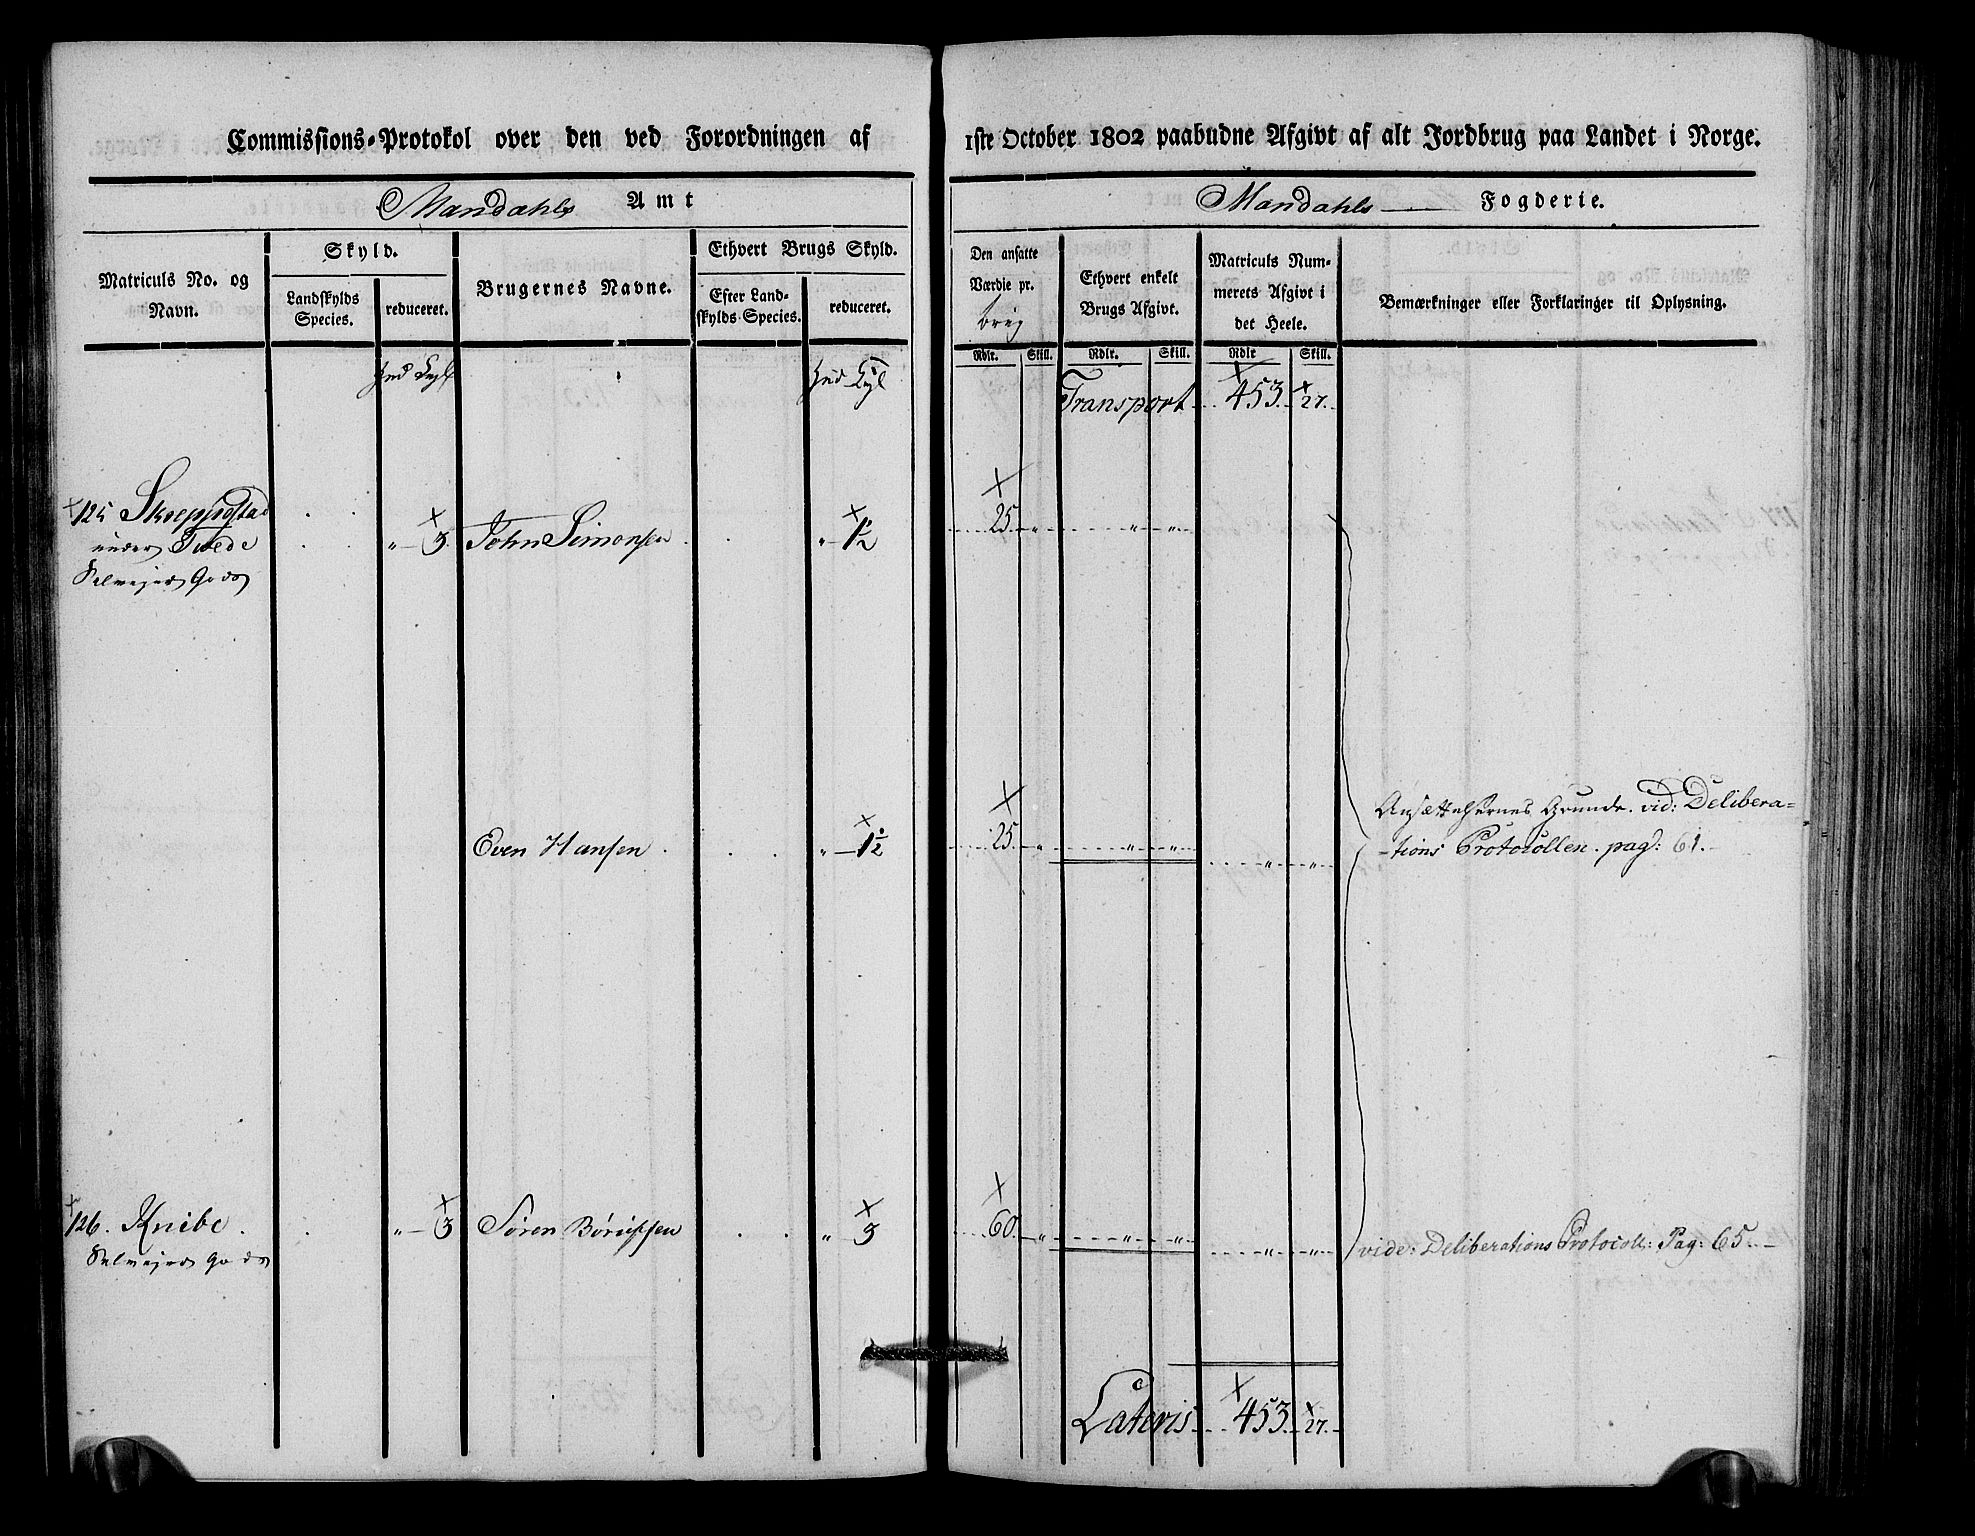 Commissions-Protokol over den ved Forordningen af 1ste October 1802 paabudne Afgivt af alt Jordbrug paa Landet i Norge.
Mandahls Amt
Mandahls Fogderie.
Matriculs No. og Navn.
Skyld.
Landskylds Species.
reduceret.
Brugernes Navne.
Ethvert Brugs Skyld.
Efter Landskylds Species.
reduceret.
Den ansatte Værdie pr.
Ethvert enkelt Brugs Afgivt.
Matriculs Nummerets Afgivt i det Heele.
Bemærkninger eller Forklaringer til Oplysning.
Rdlr. Skill. Rdlr. Skill. Rdlr Skill.
Transport 453. 27.
125 Skreppestad
under Tvede
Selveyer Gods
" – 3. John Simonsen " – 1½ 25. " " "
Even Hansen " – 1½ 25. " " " " "
Ansættelsernes Grunde. vid: Delibera=
-tions Protocollen. pag: 61.
126. Knibe. " – 3 Sören " 3 60. " " " " "
Selveyer Gods
vide: Deliberations Protocoll: Pag: 65.
Lateris 453. 27.